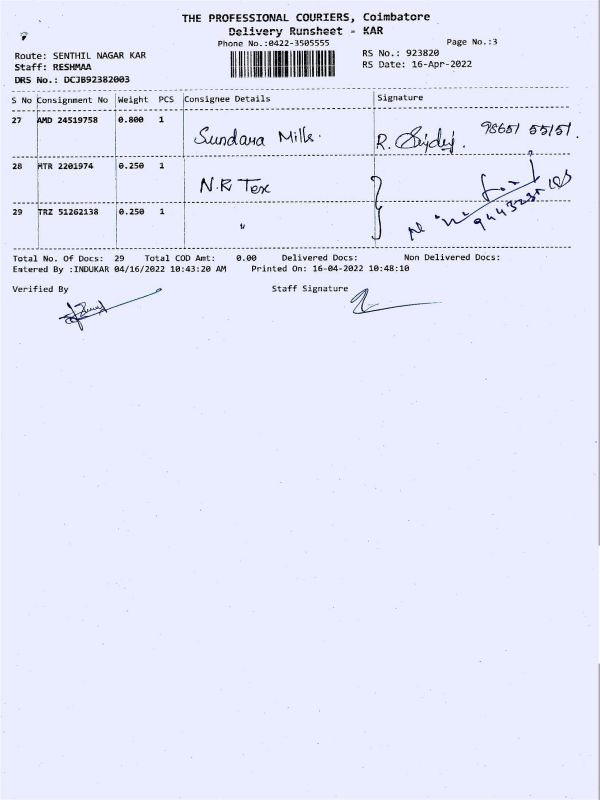 THE PROFESSIONAL COURIERS, Coimbatore
Delivery Runsheet - KAR
Phone No.:0422-3505555
Page No.:3
Route: SENTHIL NAGAR KAR
RS No.: 923820
Staff: RESHMAA
RS Date: 16-Apr-2022
DRS No.: DCJB92382003
S No Consignment No Weight PCS Consignee Details Signature
27 AMD 24519758 0.800 1 Sundara Mills. R. 98651 55151.
28 MTR 2201974 0.250 1 N.R Tex
29 TRZ 51262138 0.250 1 "
Total No. Of Docs: 29 Total COD Amt: 0.00 Delivered Docs: Non Delivered Docs:
Entered By :INDUKAR 04/16/2022 10:43:20 AM Printed On: 16-04-2022 10:48:10
Verified By Staff Signature